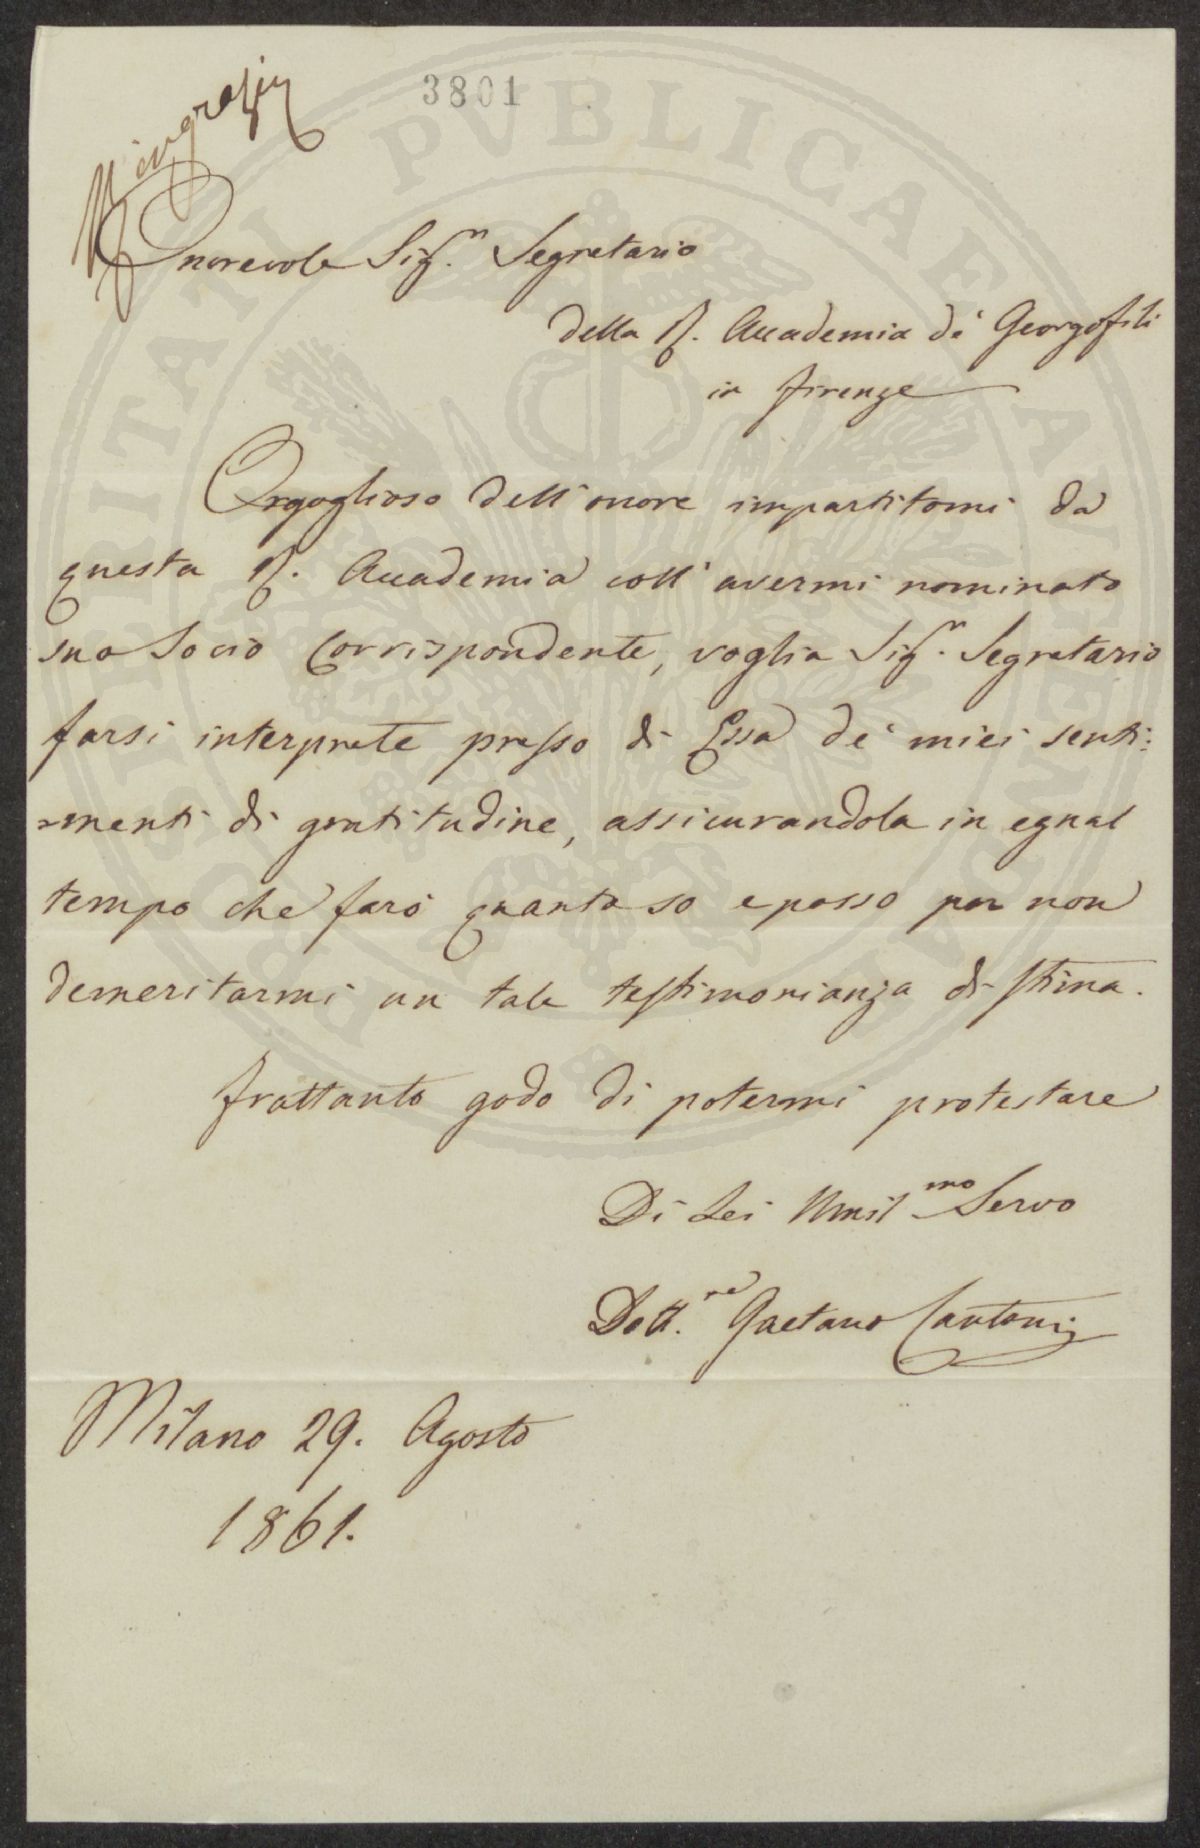 3801
Ringrazia
Onorevole Sig.r Segretario
della R. Accademia de' Georgofili
in Firenze
Orgoglioso dell'onore impartitomi da
questa R. Accademia coll'avermi nominato
suo Socio Corrispondente, voglia Sig.r Segretario
farsi interprete presso di Essa de' miei senti:
-menti di gratitudine, assicurandola in egual
tempo che farò quanto so e posso per non
demeritarmi un tale testimonianza di stima.
Frattanto godo di potermi protestare
Di Lei Umil.mo Servo
Dott.re Gaetano Cantoni
Milano 29. Agosto
1861.
PROSPERITATI PVBLICAE AVGENDAE